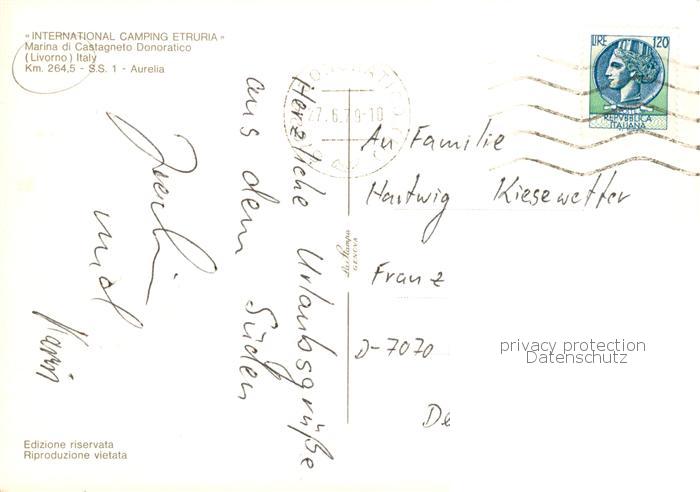 « INTERNATIONAL CAMPING ETRURIA »
Marina di Castagneto Donoratico
(Livorno) Italy
Km. 264,5 - S.S. 1 - Aurelia
Herzliche Urlaubsgrüße
aus dem Süden
und
Karin
27.6.79-10
LIRE 120
REPVBBLICA
ITALIANA
An Familie
Hartwig Kiesewetter
Franz
D-7070
De
La Stampa
GENOVA
privacy protection
Datenschutz
Edizione riservata
Riproduzione vietata